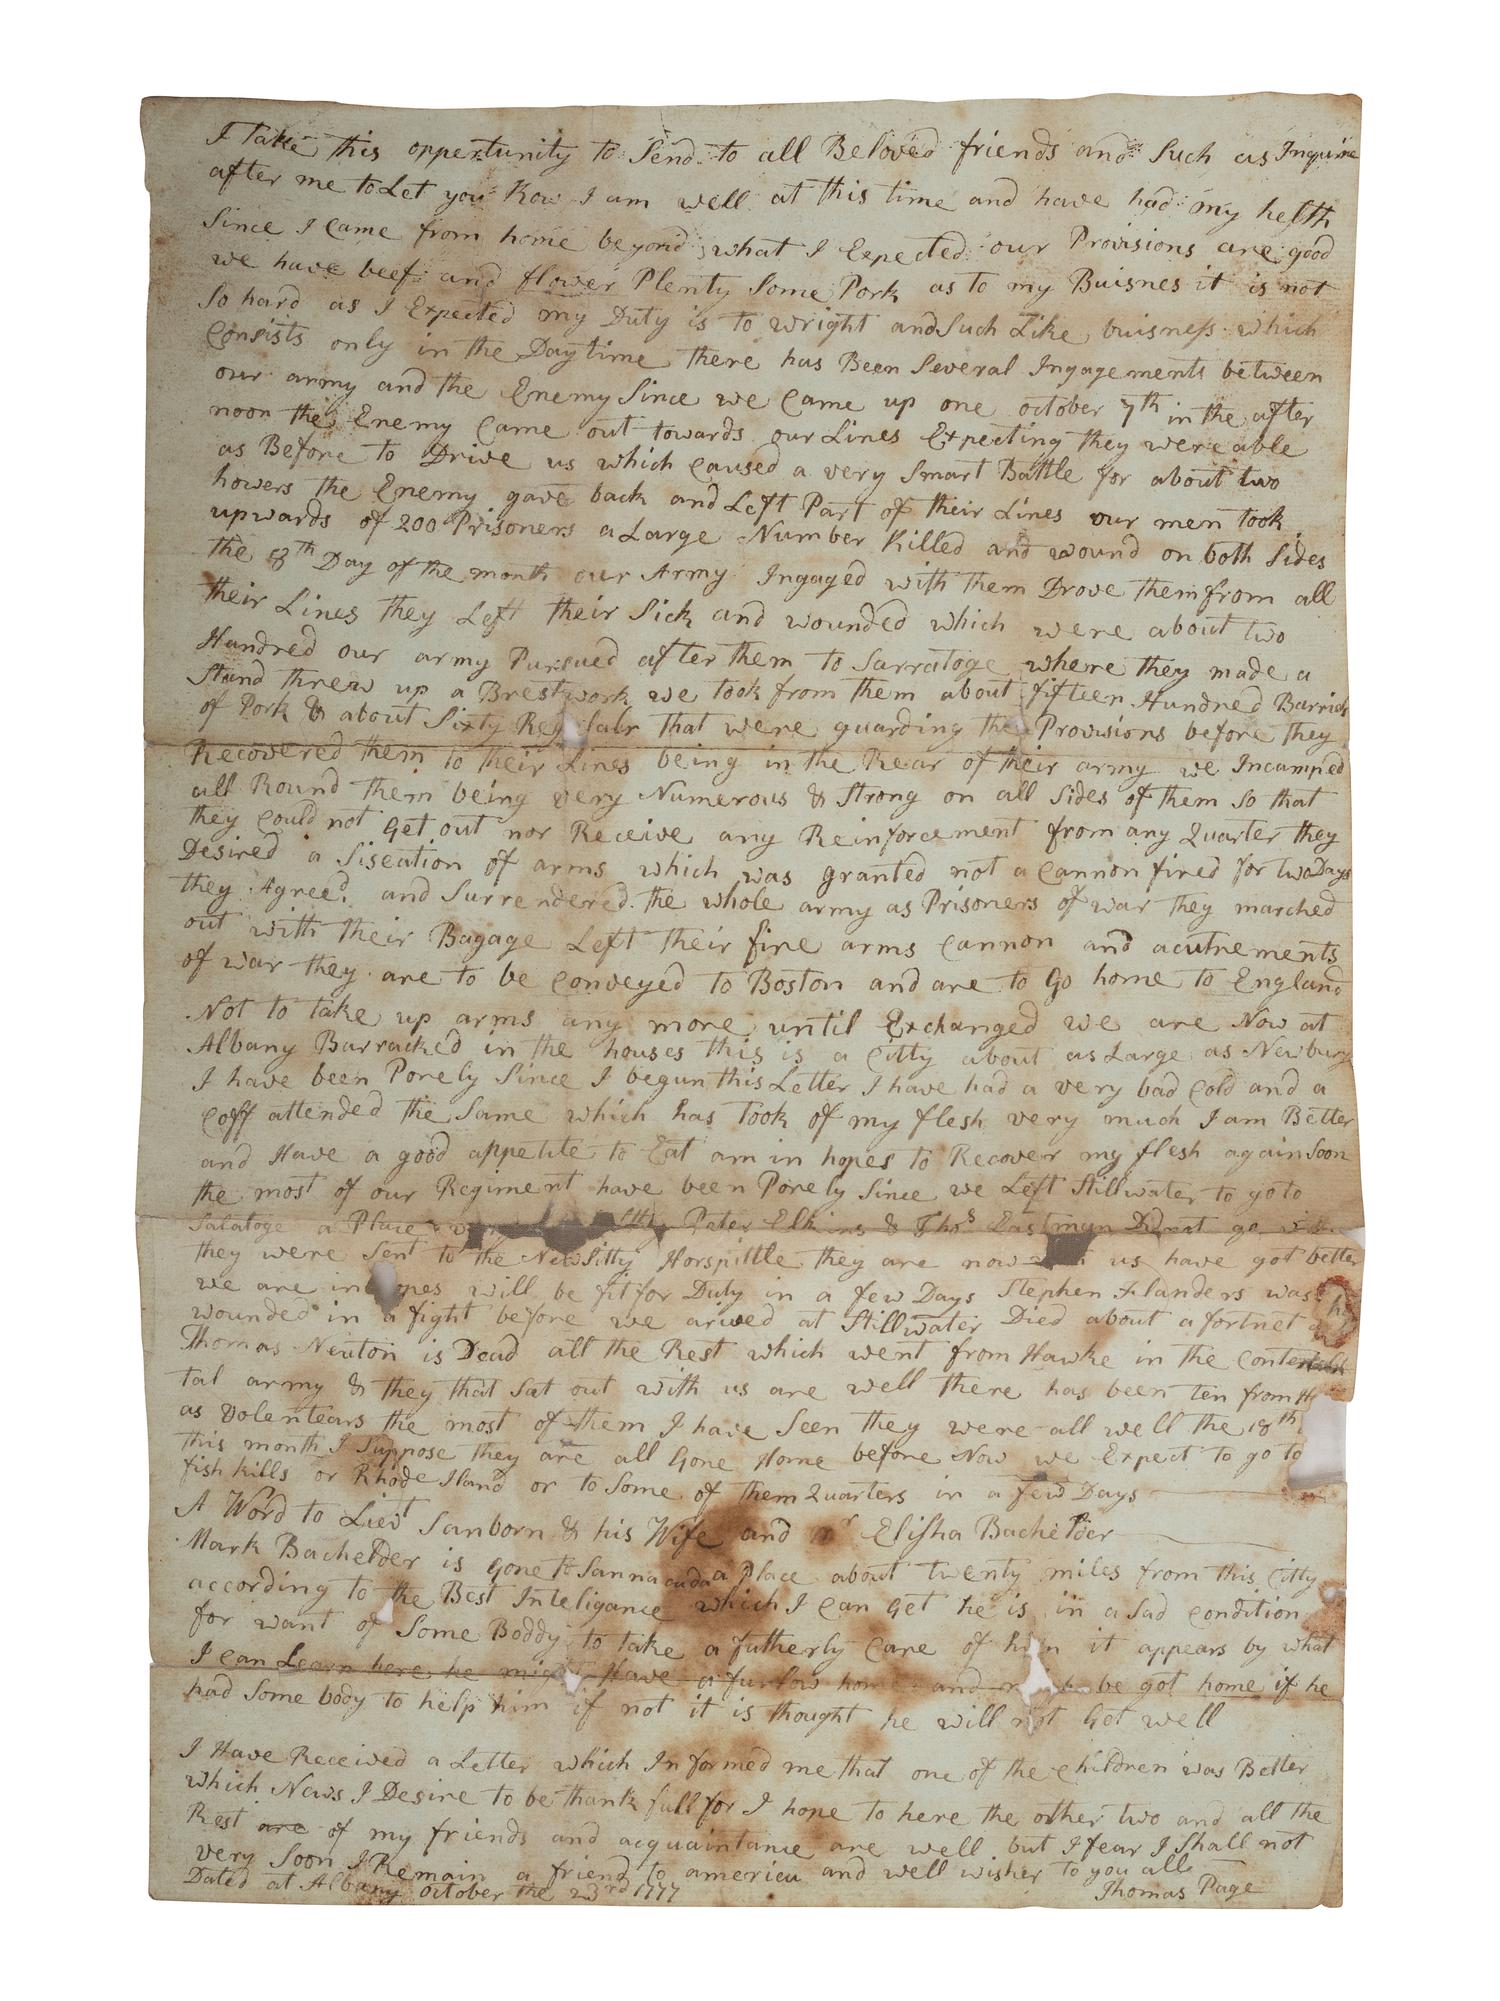 I Take this oppertunity to Send to all Beloved friends and Such as Inquire
after me to Let you Kow I am well at this time and have had my helth
Since I Came from home beyond what I Expected our Provisions are good
we have beef and flower Plenty Some Pork as to my Buisnes it is not
So hard as I Expected my Duty is to wright and Such Like buisness which
Consists only in the Day time there has Been Several Ingagements between
our army and the Enemy Since we Came up one october 7th in the after
noon the Enemy Came out towards our Lines Expecting they were able
as Before to Drive us which Caused a very Smart Battle for about two
howers the Enemy gave back and Left Part of their Lines our men took
upwards of 200 Prisoners a Large Number Killed and wound on both Sides
the 8th Day of the month our Army Ingaged with them Drove them from all
their Lines they Left their Sick and wounded which were about two
Hundred our army Pursued after them to Sarratoge where they made a
Stand threw up a Brestwork we took from them about fifteen Hundred Barriels
of Pork & about Sixty that were guarding the Provisions before they
Recovered them to their Lines being in the Rear of their army we Incamped
all Round them being very Numerous & Strong on all Sides of them So that
they Could not Get out nor Receive any Reinforcement from any Quarter they
Desired a Siseation of arms which was granted not a Cannon fired for two Days
they Agreed and Surrendered the whole army as Prisoners of war they marched
out with their Bagage Left their fire arms Cannon and acutrements
of war they are to be Conveyed to Boston and are to Go home to England
Not to take up arms any more until Exchanged we are Now at
Albany Barracked in the houses this is a Citty about as Large as Newbury
I have been Porely Since I begun this Letter I have had a very bad Cold and a
Coff attended the Same which has Took of my flesh very much I am Better
and Have a good appetite to Eat am in hopes to Recover my flesh again Soon
the most of our Regiment have been Porely Since we Left Stillwater to go to
Salatoge a Place Peter Elkins & Thos Eastman Did not go
they were Sent to the New Sitty Horspittle they are now us have got better
we are in will be fit for Duty in a few Days Stephen Flanders was
wounded in a fight before we arived at Stillwater Died about a fortnet
Thomas Newton is Dead all the Rest which went from Hawke in the
tal army & they that Sat out with us are well there has been ten from
as Volentears the most of them I have Seen they were all well the 18th
this month I Suppose they are all Gone Home before Now we Expect to go to
fish kills or Rhode Iland or to Some of them Quarters in a few Days
A Word to Lieut Sanborn & his Wife and Elisha Bachelder
Mark Bachelder is gone to a Place about twenty miles from this Citty
according to the Best Inteligance which I Can Get he is in a Sad Condition
for want of Some Boddy to take a futherly Care of him it appears by what
I Can Learn here he might Have a furlow home and be got home if he
had Some body to help him if not it is thought he will not Get well
I Have Received a Letter which Informed me that one of the Children was Better
which News I Desire to be thank full for I hope to here the other two and all the
Rest are of my friends and acquaintance are well but I fear I Shall not
very Soon I Remain a friend to america and well wisher to you all
Dated at Albany october the 23rd 1777 Thomas Page